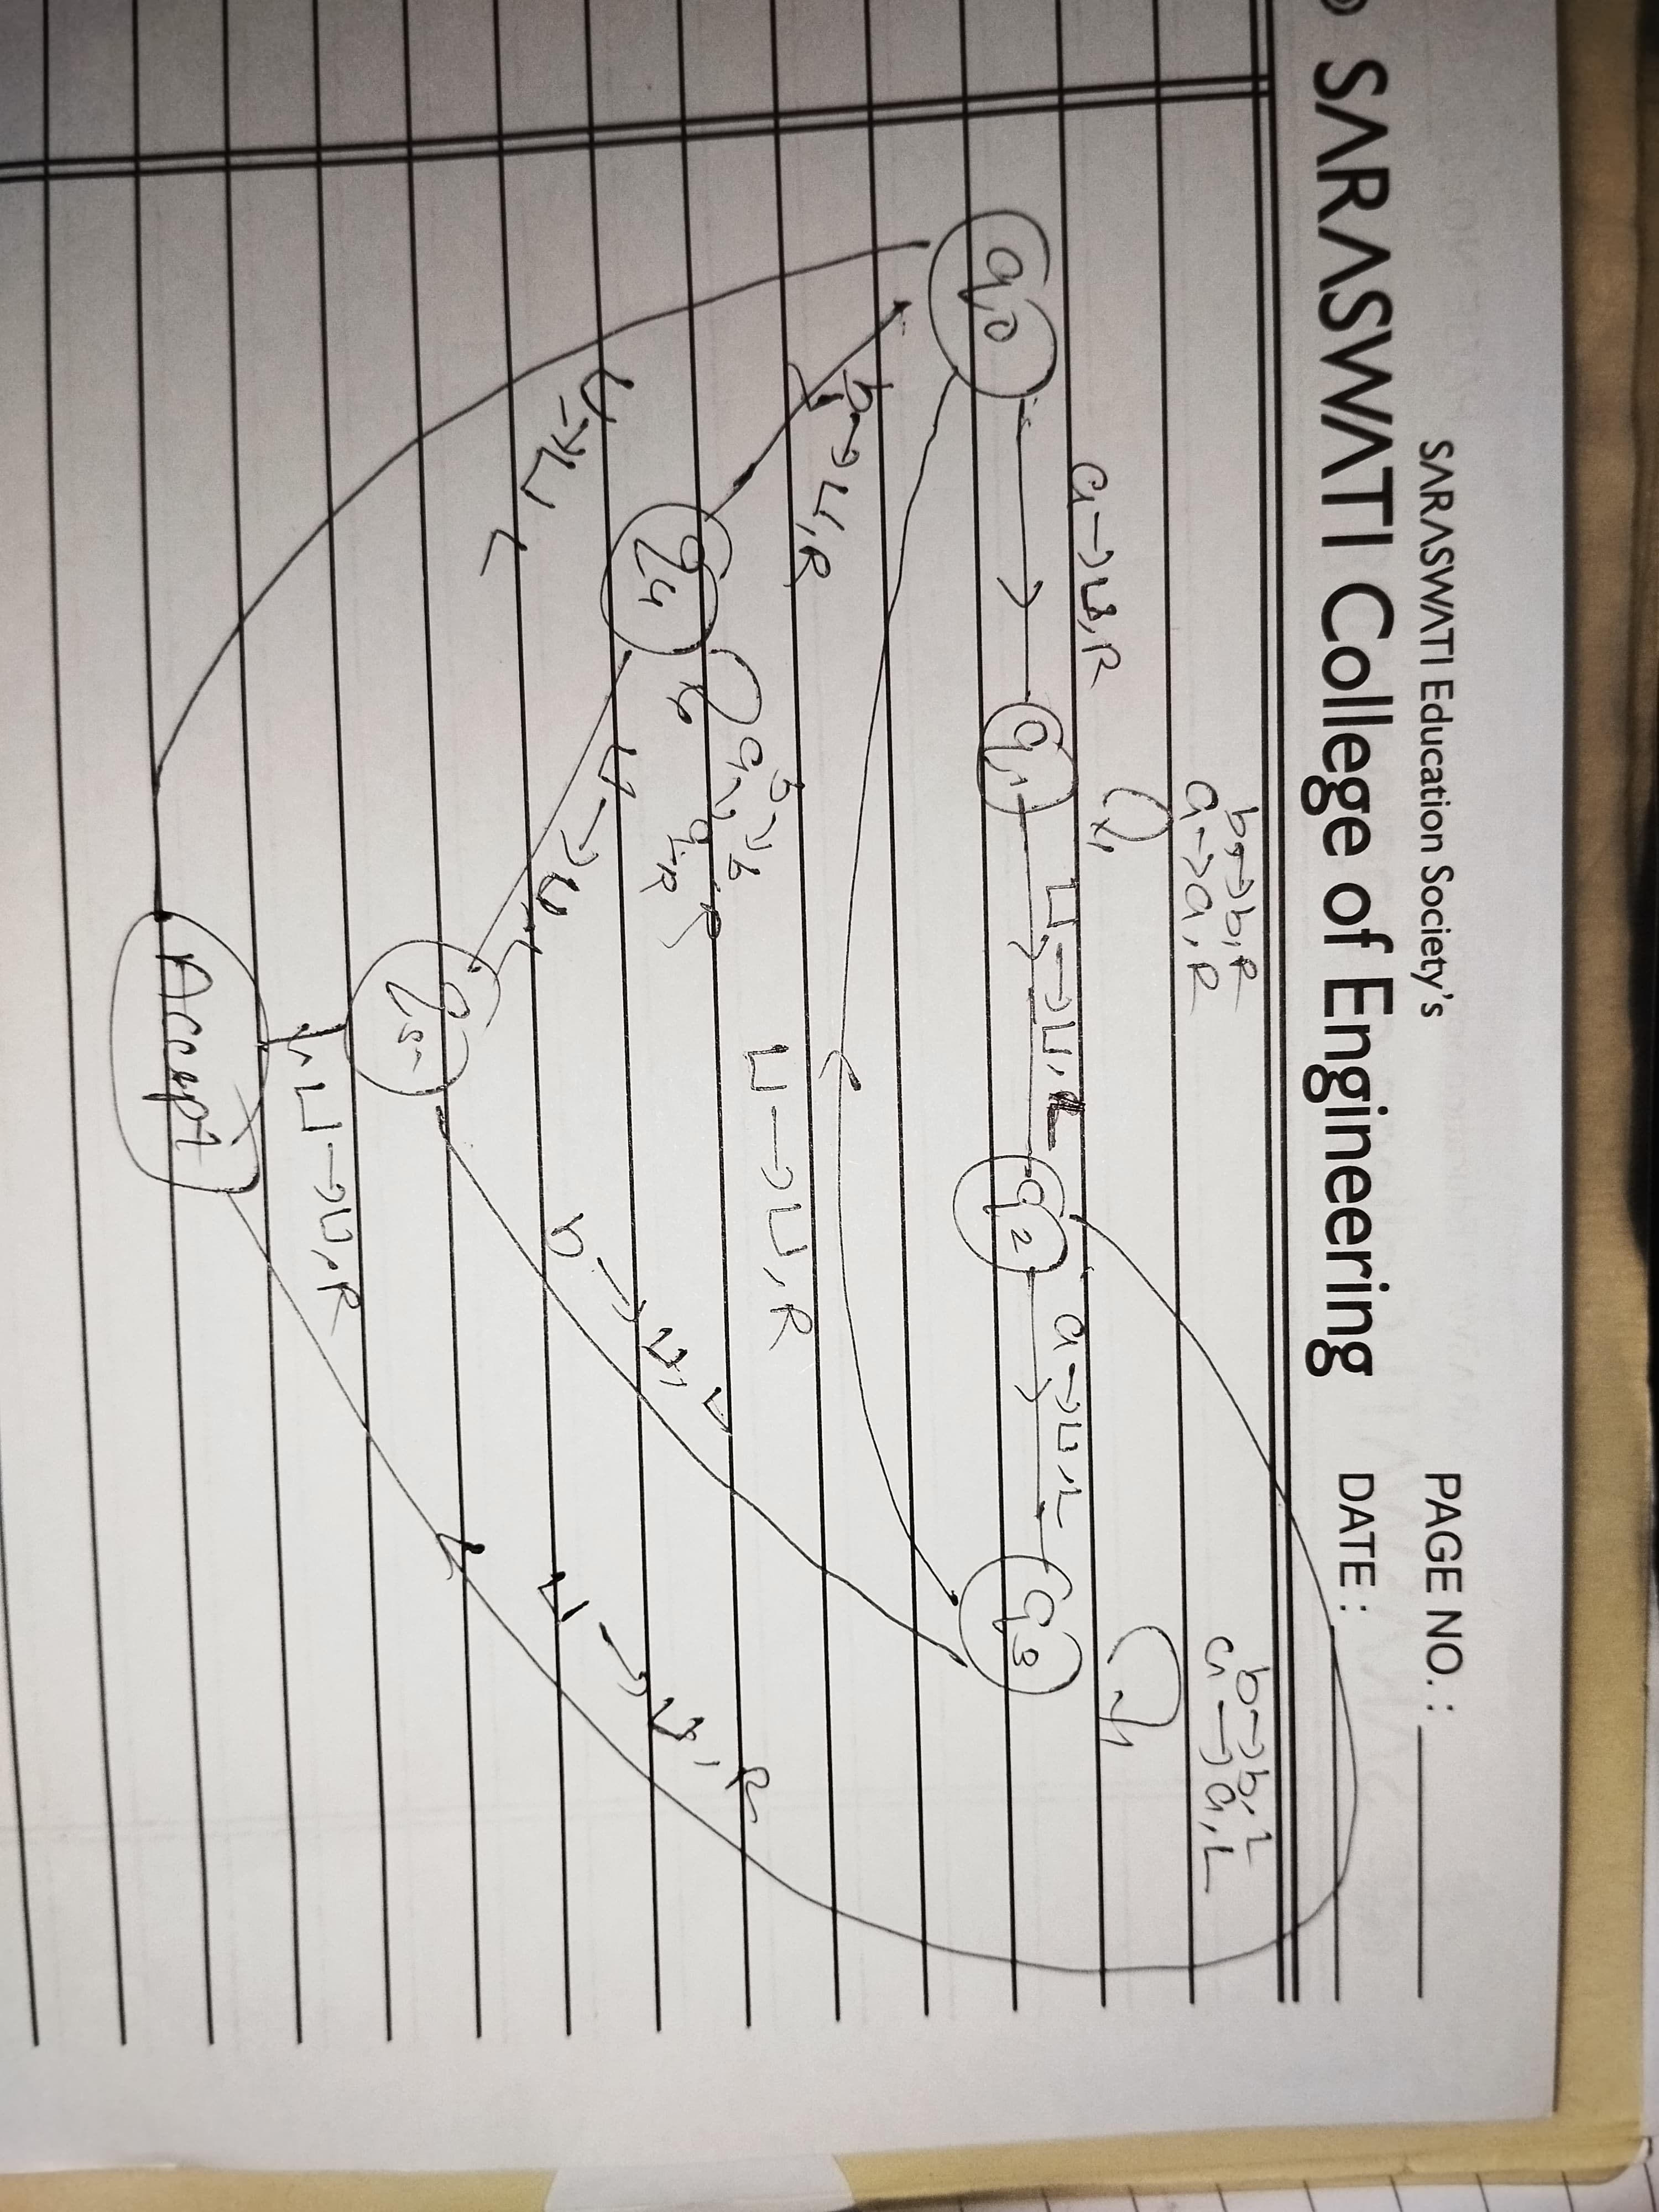 SARASWATI Education Society's
PAGE NO. :
SARASWATI College of Engineering
DATE :
b→b,R
a→a,R
b→b,L
a→a,L
a→⊔,R
⊔→⊔,L
a→⊔,L
q0
q1
q2
q3
b→⊔,R
⊔→⊔,R
b→b,R
a→a,R
q4
⊔→⊔,L
b→⊔,L
⊔→⊔,R
⊔→⊔
q5
⊔→⊔,R
Accept